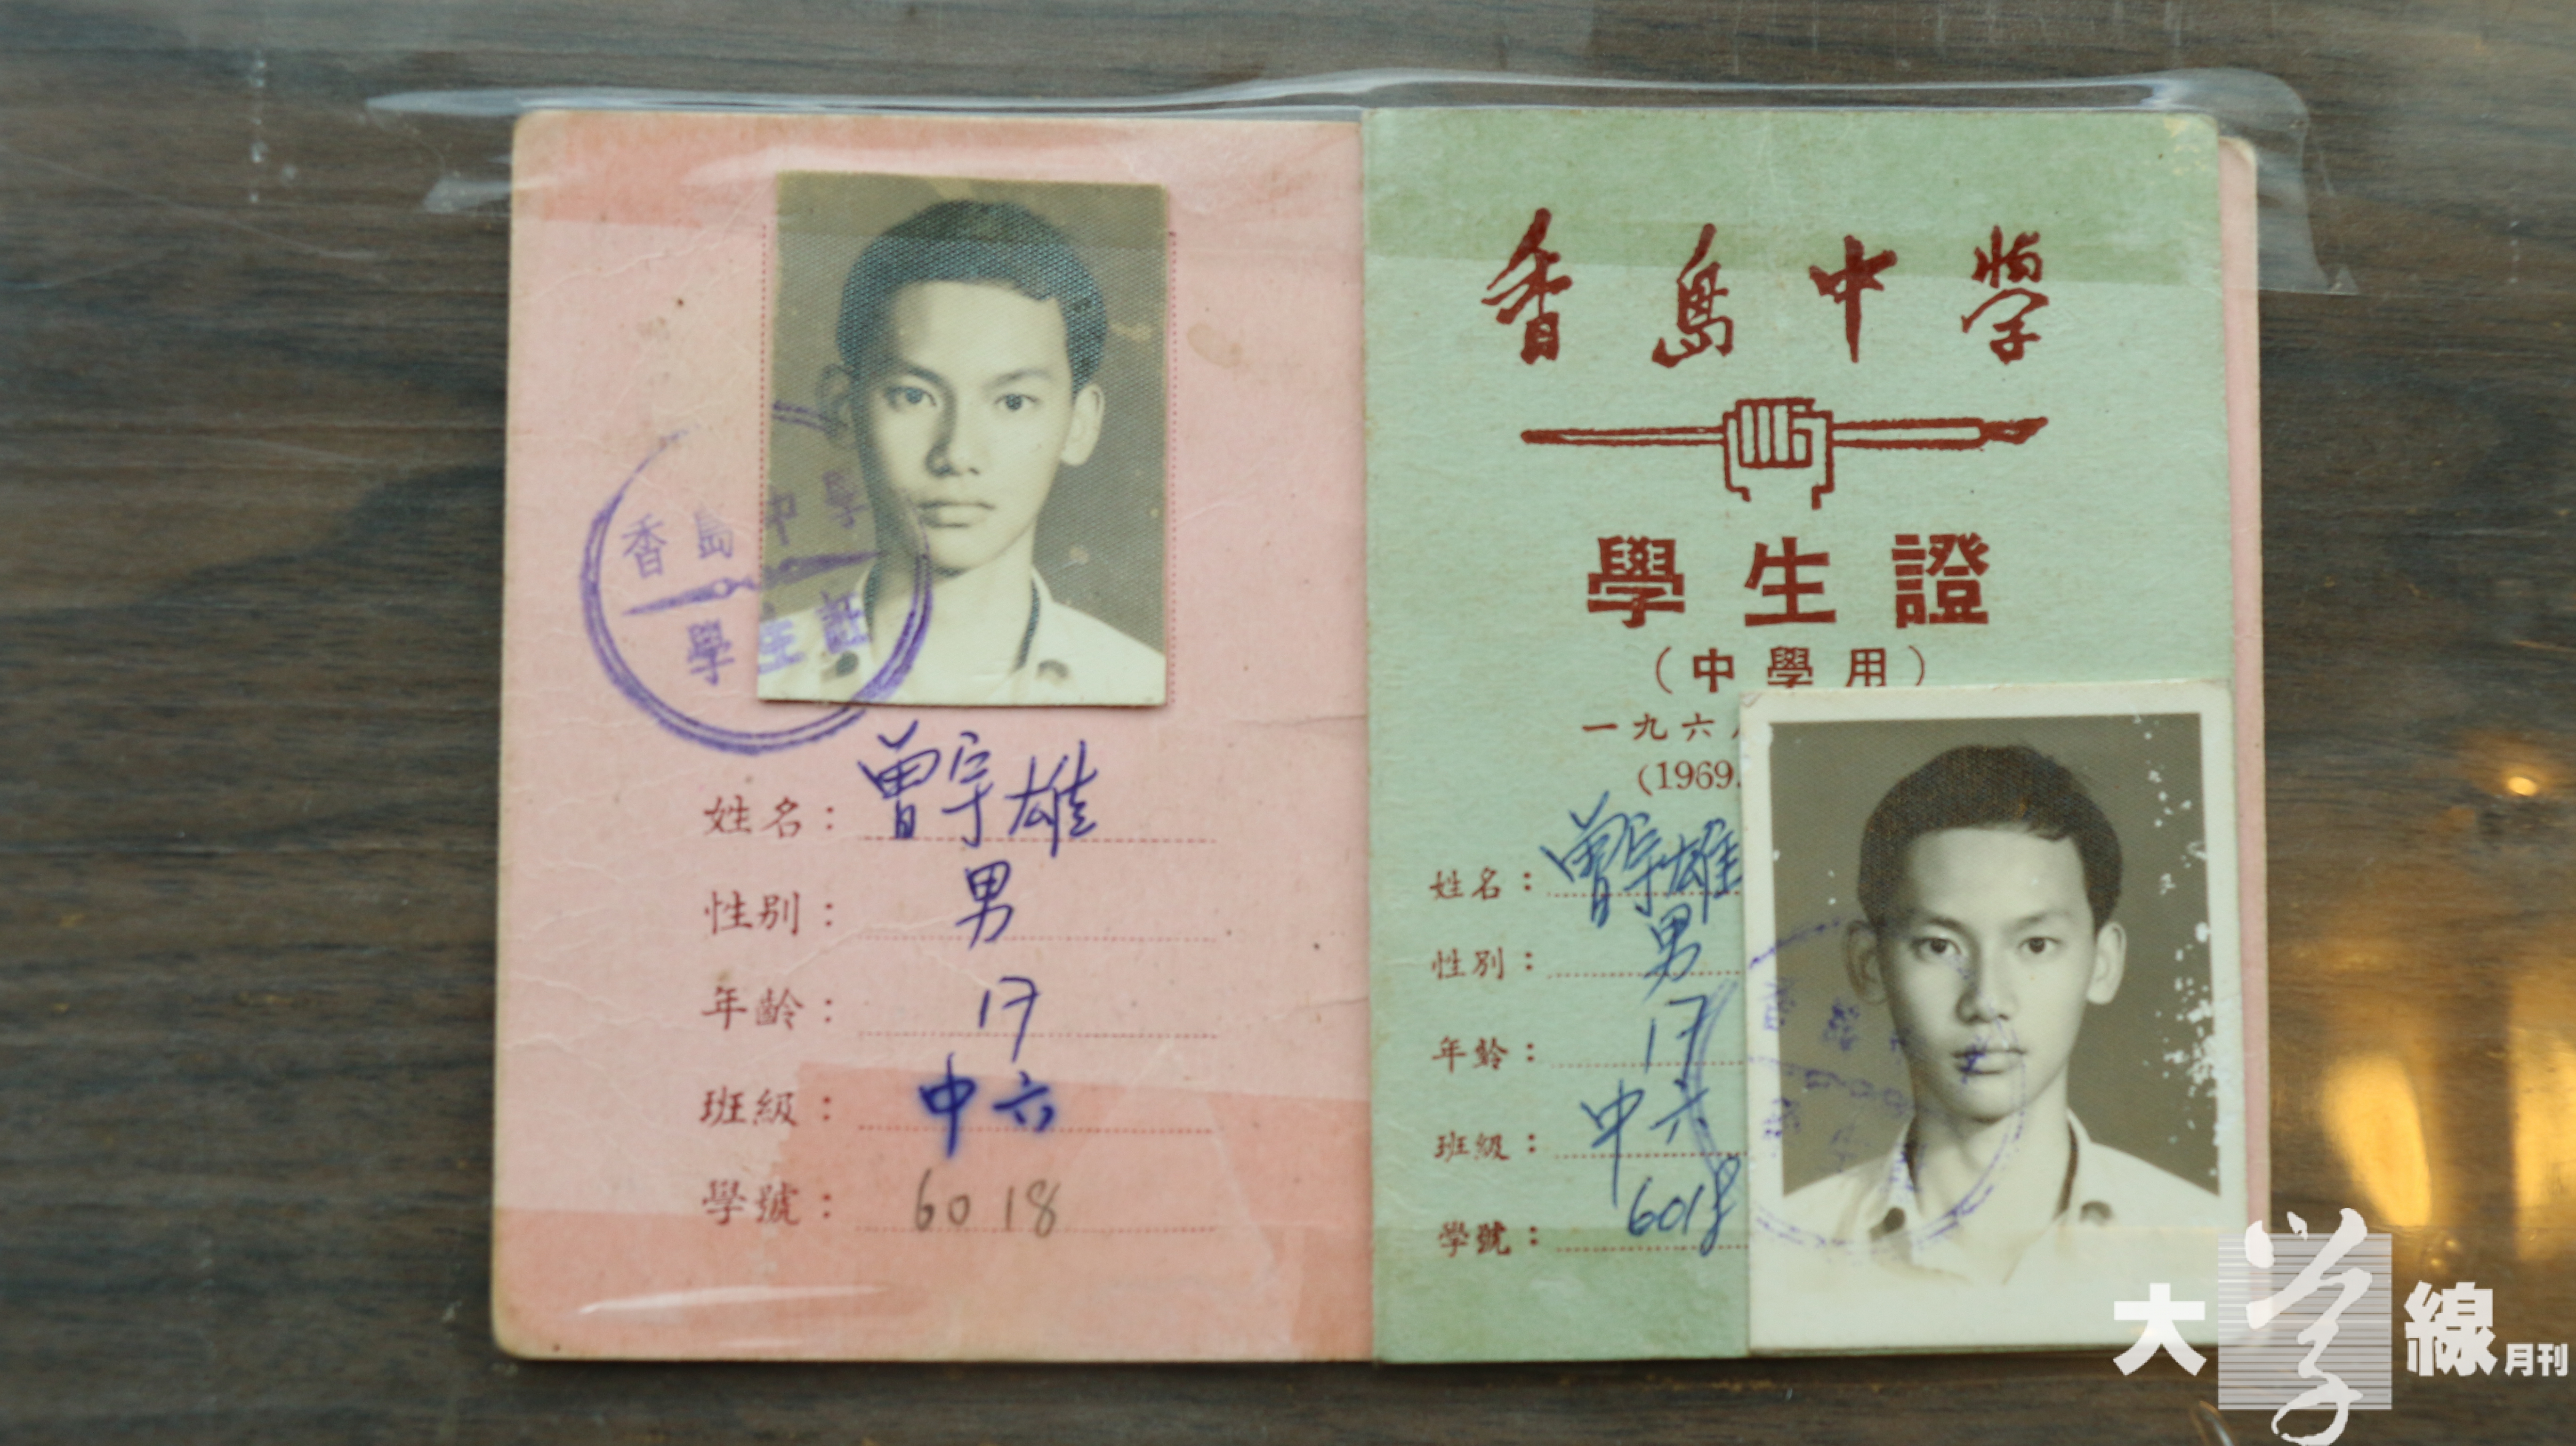 香島中學
學生証
姓名：曾宇雄
性别：男
年齡：17
班級：中六
學號：6018
香島中學
學生證
（中學用）
一九六八
(1969.
姓名：曾宇雄
性別：男
年齡：17
班級：中六
學號：6018
大學線月刊